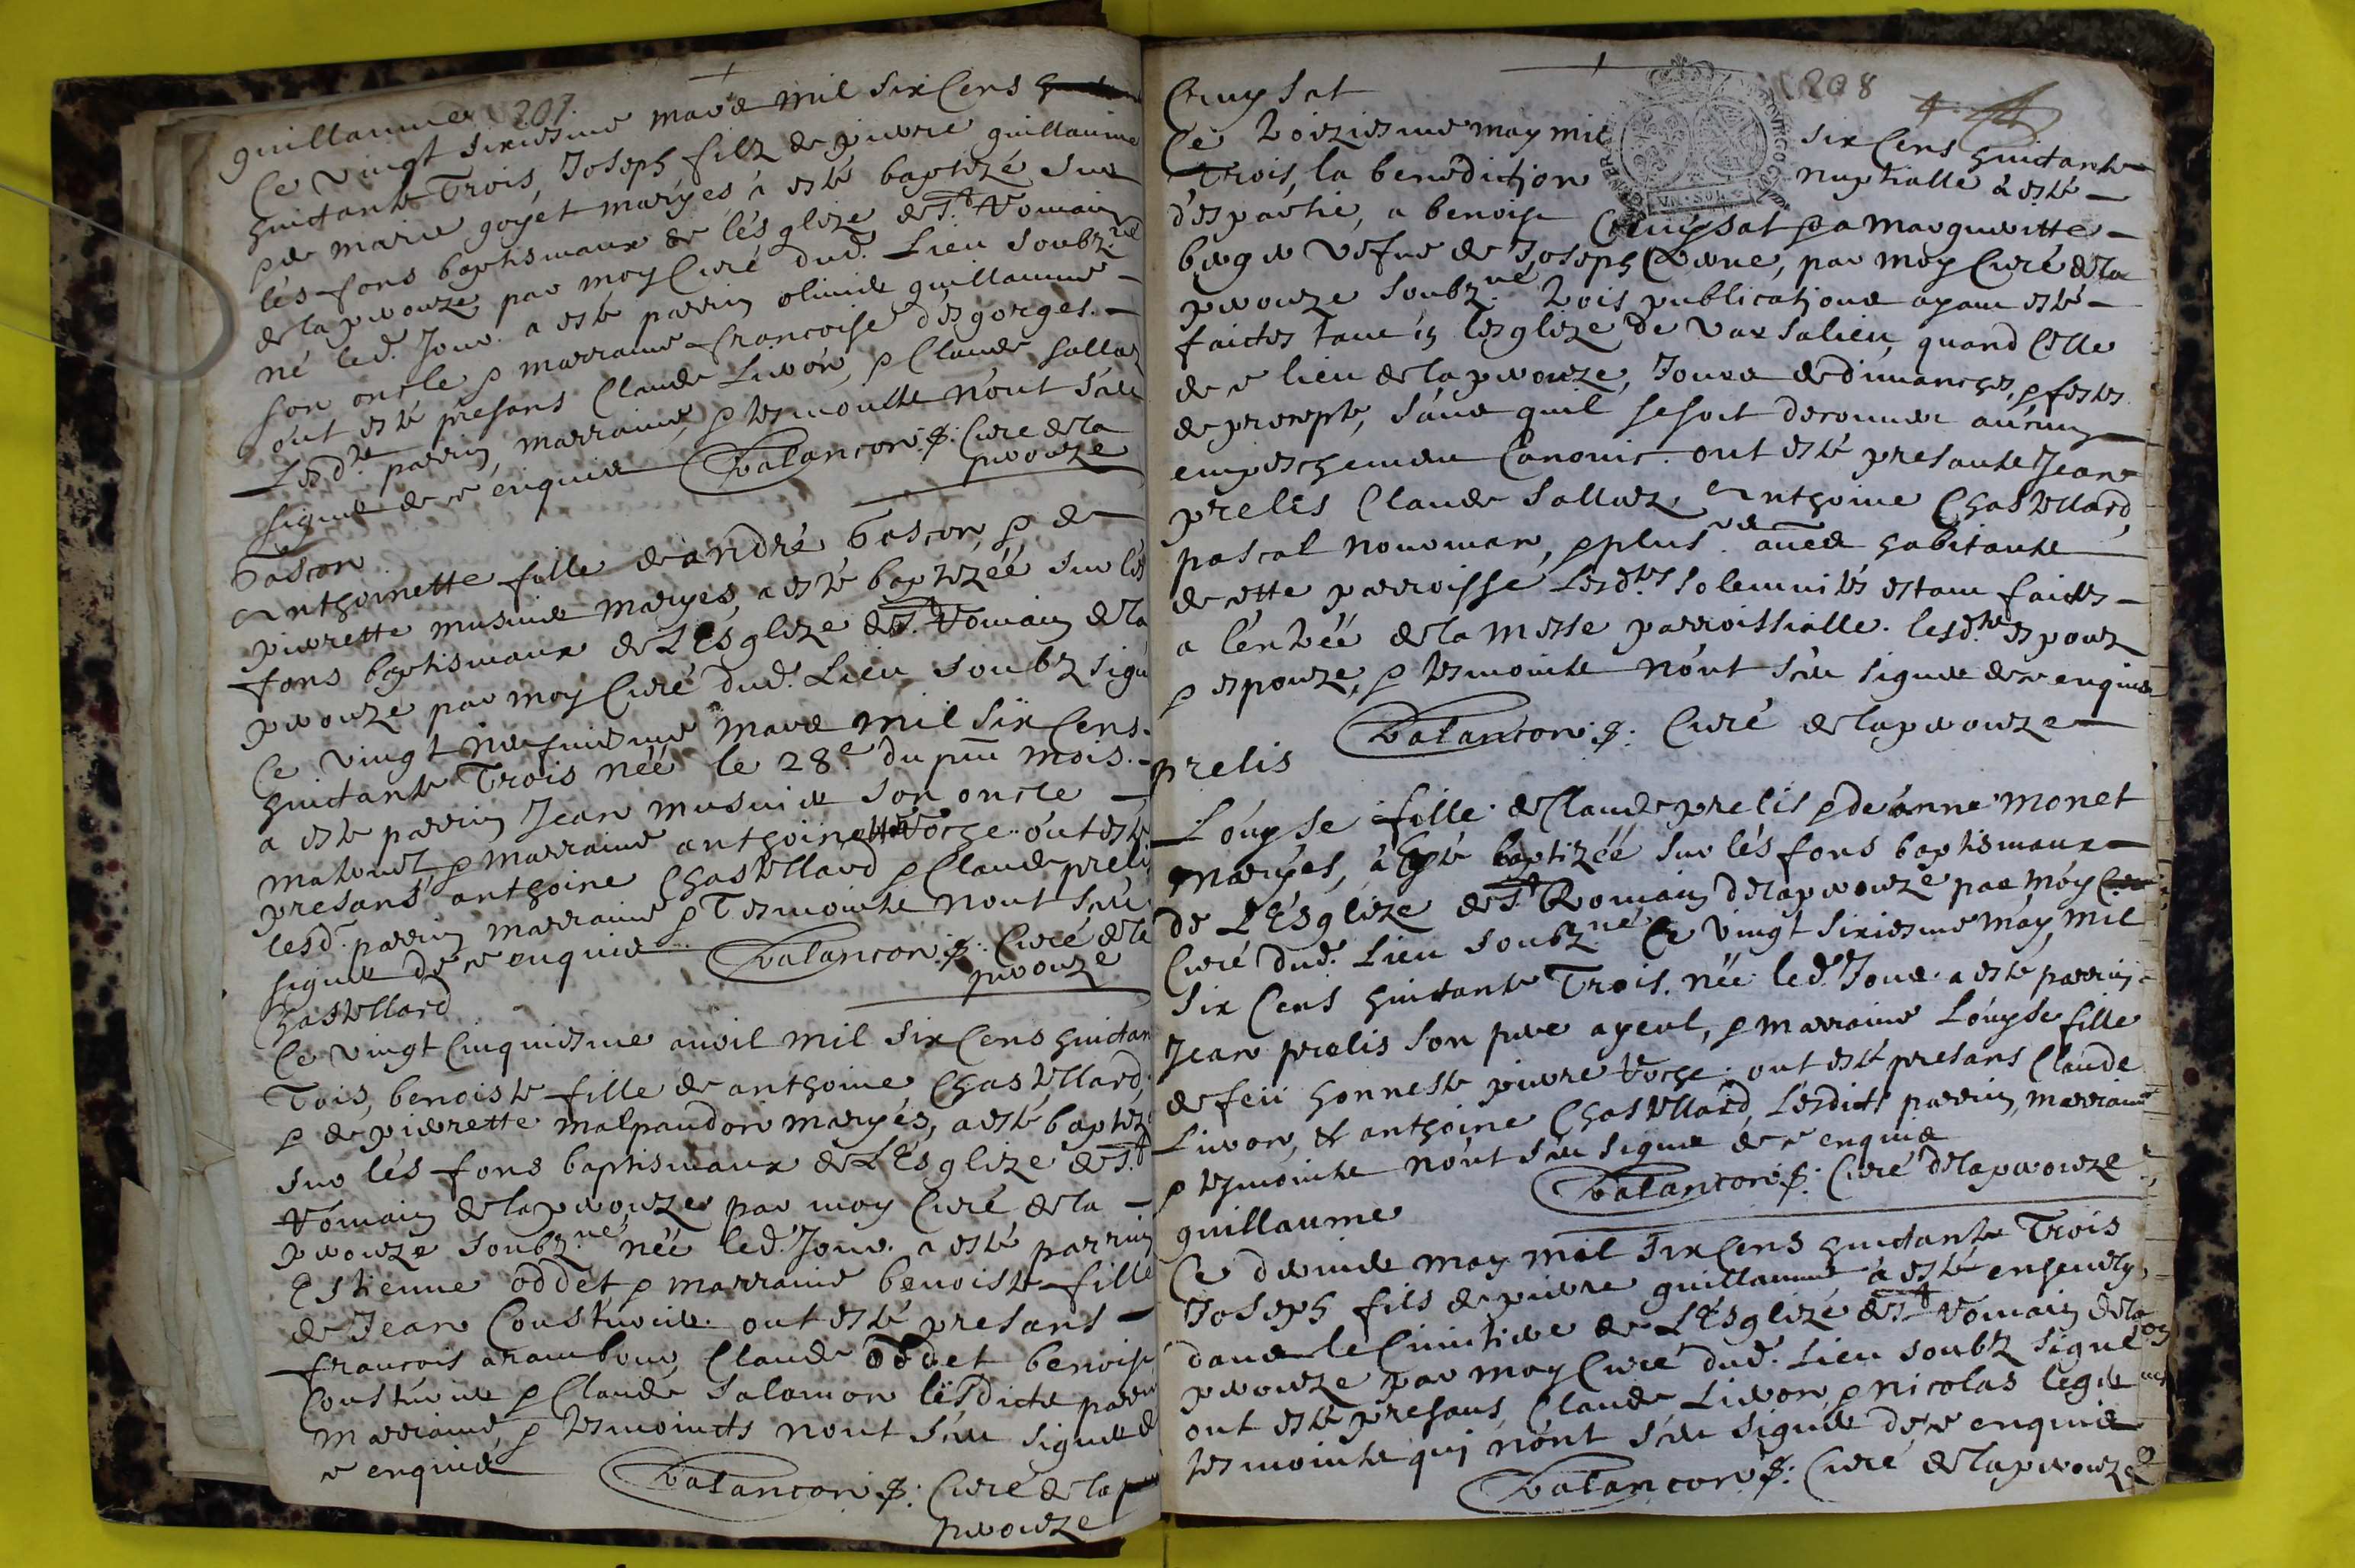 guillaume 207.
Ce vingt sixiesme mars mil six Cens
huictante Trois, Joseph filz de pierre guillaume
& de marie goyet maryes, a esté baptizé sur
lés fons baptismaux de lésglize de St. Romain
de la perouze par moy Curé dud. Lieu soubz.né
né led. Jour. a esté parrin olivier guillaume
son oncle & marraine francoise désgorges.
ont esté présans Claude Livon, & Claude sallaz
Lesd.ts parrin, marraine, & tesmoints nónt scéu
signer de ce enquis Balancon p: Curé de la
perouze
bascon
Anthoinette fille de andré bascon, & de
pierrette musnier maryes, a esté baptizéé sur lés
fons baptismaux de L'Esglize de St. Romain de la
perouze par moy Curé dud. Lieu soubz signé
Ce vingt neufviesme mars mil six Cens
huictante Trois néé le 28.e du pnt mois.
a esté parrin Jean musnier son oncle
maternel, & marraine anthoinette Roche. ónt esté
presans anthoine Chastellard & Claude prelis
lesd. parrin marraine & Tesmoints nont scéu
signer dé ce enquis Balancon p: Curé de la
perouze
Chastellard
Ce vingt Cinquiesme avril mil six Cens huictan
Trois, benoiste fille de anthoine Chastellard,
& de pierrette malpaudon maryés, a esté baptizé
sur lés fons baptismaux de L'Esglize de St.
Romain de la perouze par moy Curé de la
perouze soubz.né néé led. Jour. a esté parrin
Estienne oddet & marraine benoiste fille
de Jean Cousturier. ont esté presans
francois arambour, Claude oddet benoist
Cousturier & Claude Salomon lésdicts parrin
marraine, & tesmoints nont scéu signer de
ce enquis Balancon p: Curé de la
perouze
Cruysat 208
Ce troiziesme may mil six Cens huictante
Trois, la benediction nuptialle a esté
déspartie, a benoist Cruysat & a margueritte
vefve de Joseph, par moy Curé de la
perouze soubz.né trois publications ayant esté
faictes tant en lésglize de varsalieu, quand Celle
de ce lieu de la perouze, Jours de dimanches, & festes
de precepte, sans quil se soit decouver aucung
empeschement Canonic. ont esté presants Jean
prelis Claude Sallaz Anthoine Chastellard,
pascal nouvman, & plus.rs aures habitants
de cette parroisse Lesd.tes solemnités estant faictes
a léntréé de la messe parroissialle. lesd.ts espoux
& espouze, & tesmoints nónt scéu signer de ce enquis
Balancon p: Curé de la perouze
prelis
Lóuyse fille de Claude prelis & de anne monet
maryes, á esté baptizéé sur lés fons baptismaux
de L'Esglize de St. Romain de la perouze par móy
Curé dud. Lieu soubz.né Ce vingt sixiesme máy mil
six Cens huictante Trois. néé led. Jour. a esté parrin
Jean prelis son pere ayeul, & marraine Lóuyse fille
de feü honneste pierre Roche. ont esté presans Claude
Livon, & anthoine Chastellard, Lésdicts parrin, marraine
& tesmoints nónt scéu signer de ce enquis
Balancon p: Curé de la perouze
guillaume
Ce dernier may mil six Cens huictante Trois
Joseph fils de pierre guillaume á esté ensevely
dans le Cimitiere de L'Esglizé de St. Romain de la
perouze par moy Curé dud. Lieu soubz signé
ont esté presans Claude Livon, & nicolas leger
tesmoints qui nónt scéu signer dé ce enquis
Balancon p: Curé de la perouze